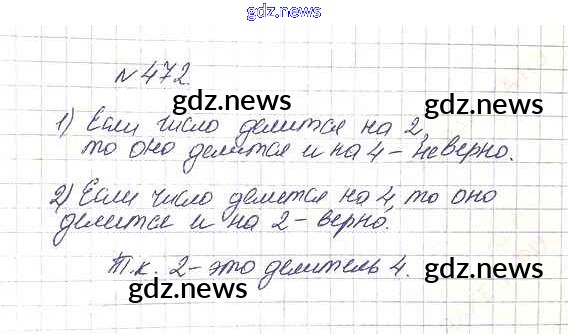 gdz.news
№472.
gdz.news gdz.news
1) Если число делится на 2,
то оно делится и на 4 – неверно.
gdz.news gdz.news
2) Если число делется на 4, то оно
делится и на 2 – верно.
gdz.news
Т.к. 2 – это делитель 4.
gdz.news gdz.news